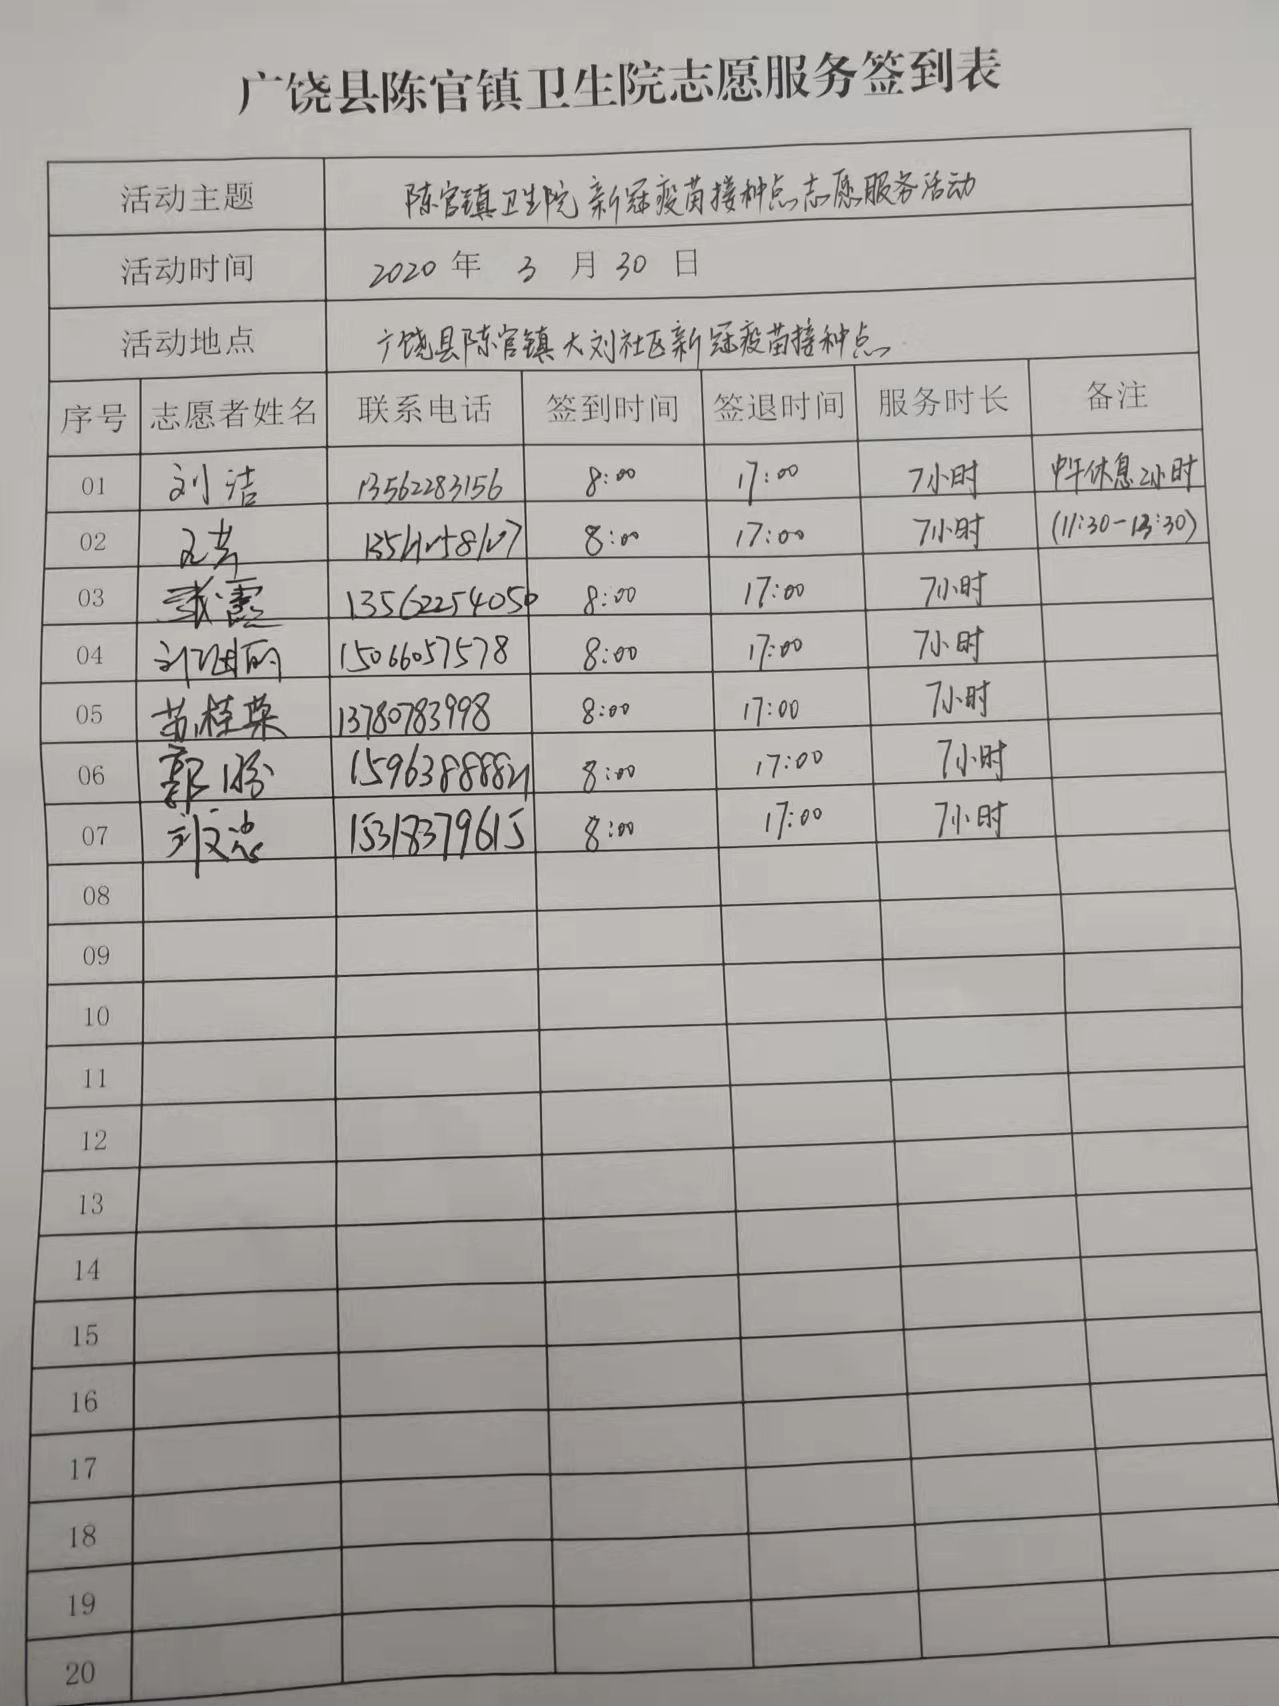 广饶县陈官镇卫生院志愿服务签到表
活动主题 陈官镇卫生院新冠疫苗接种点志愿服务活动
活动时间 2020 年 3 月 30 日
活动地点 广饶县陈官镇大刘社区新冠疫苗接种点
序号 志愿者姓名 联系电话 签到时间 签退时间 服务时长 备注
01 刘洁 13562283156 8:00 17:00 7小时 中午休息2小时
02 8:00 17:00 7小时 (11:30-13:30)
03 霞 13562254050 8:00 17:00 7小时
04 15066057578 8:00 17:00 7小时
05 苏桂荣 13780783998 8:00 17:00 7小时
06 郭 15963888821 8:00 17:00 7小时
07 15318379615 8:00 17:00 7小时
08
09
10
11
12
13
14
15
16
17
18
19
20